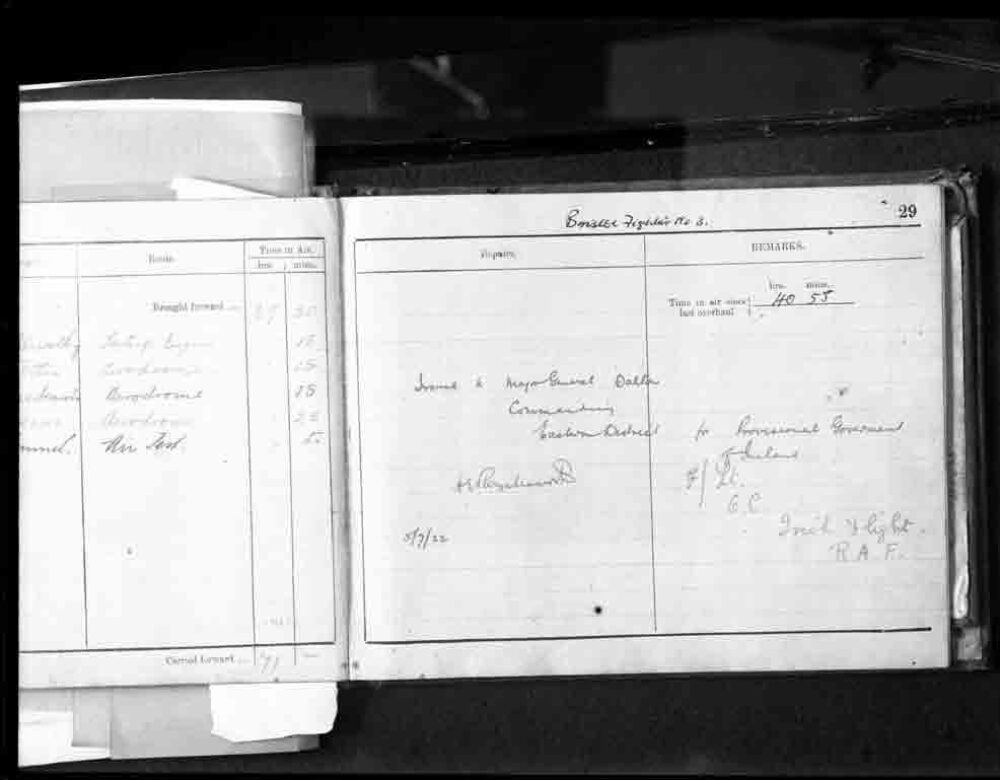 Route.
Time in Air.
hrs. mins.
Brought forward 39 30
Engine 15
Aerodrome 15
Aerodrome 15
Aerodrome
Air Test.
Carried forward 41 —
Bristol Fighter No 3. 29
Repairs. REMARKS.
hrs. mins.
Time in air since last overhaul 40 55
Issued to Major General Dalton
Commanding
Eastern District for Provisional Government
of Ireland
F/Lt.
O.C.
5/7/22
Irish Flight.
R.A.F.